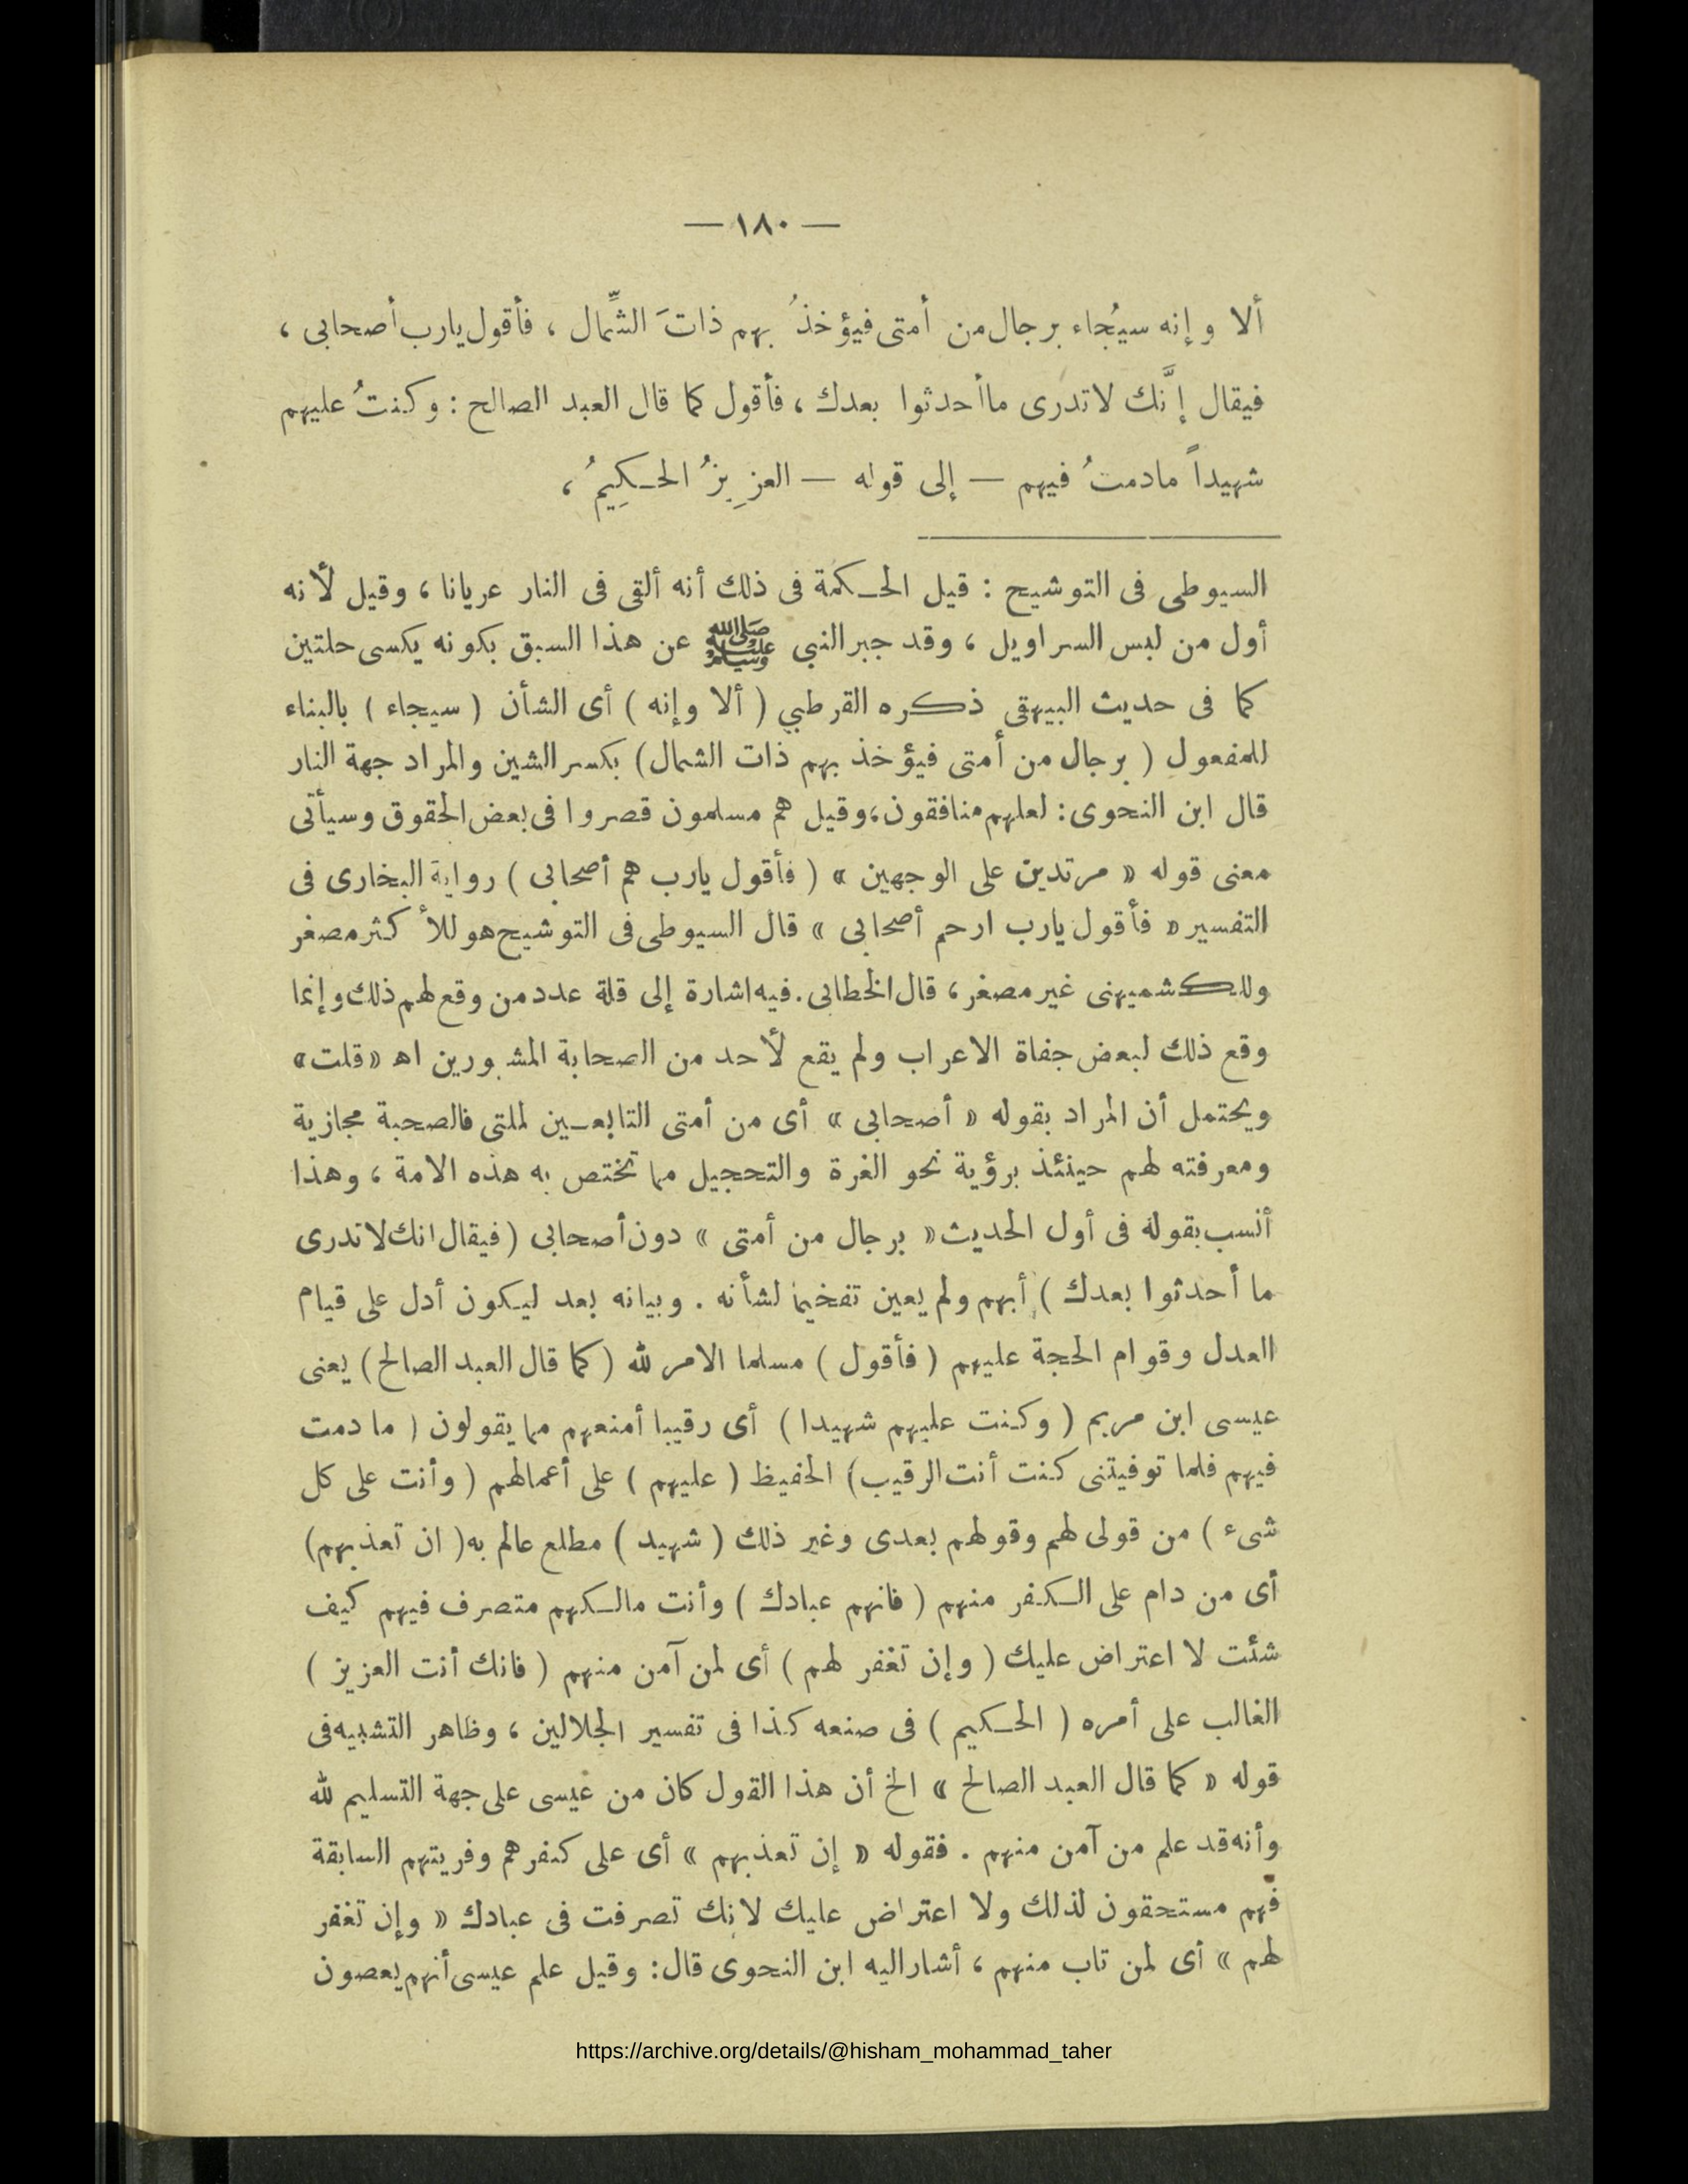 — ١٨٠ —
ألا وإنه سيُجاء برجال من أمتى فيؤخذُ بهم ذاتَ الشِّمال ، فأقول يارب أصحابى ،
فيقال إنَّك لاتدرى ماأحدثوا بعدك ، فأقول كما قال العبد الصالح : وكنتُ عليهم
شهيداً مادمتُ فيهم — إلى قوله — العزِيزُ الحكِيمُ ،
السيوطى فى التوشيح : قيل الحكمة فى ذلك أنه ألقى فى النار عريانا ، وقيل لأنه
أول من لبس السراويل ، وقد جبر النبى ﷺ عن هذا السبق بكونه يكسى حلتين
كما فى حديث البيهقى ذكره القرطبي ( ألا وإنه ) أى الشأن ( سيجاء ) بالبناء
للمفعول ( برجال من أمتى فيؤخذ بهم ذات الشمال ) بكسر الشين والمراد جهة النار
قال ابن النحوى : لعلهم منافقون ، وقيل هم مسلمون قصروا فى بعض الحقوق وسيأتى
معنى قوله « مرتدين على الوجهين » ( فأقول يارب هم أصحابى ) رواية البخارى فى
التفسير « فأقول يارب ارحم أصحابى » قال السيوطى فى التوشيح هو للأكثر مصغر
وللكشميهنى غير مصغر ، قال الخطابى . فيه اشارة إلى قلة عدد من وقع لهم ذلك وإنما
وقع ذلك لبعض جفاة الاعراب ولم يقع لأحد من الصحابة المشهورين اه « قلت »
ويحتمل أن المراد بقوله « أصحابى » أى من أمتى التابعين لملتى فالصحبة مجازية
ومعرفته لهم حينئذ برؤية نحو الغرة والتحجيل مما تختص به هذه الامة ، وهذا
أنسب بقوله فى أول الحديث « برجال من أمتى » دون أصحابى ( فيقال انك لاتدرى
ما أحدثوا بعدك ) أبهم ولم يعين تفخيما لشأنه . وبيانه بعد ليكون أدل على قيام
العدل وقوام الحجة عليهم ( فأقول ) مسلما الامر لله ( كما قال العبد الصالح ) يعنى
عيسى ابن مريم ( وكنت عليهم شهيدا ) أى رقيبا أمنعهم مما يقولون ( ما دمت
فيهم فلما توفيتنى كنت أنت الرقيب ) الحفيظ ( عليهم ) على أعمالهم ( وأنت على كل
شىء ) من قولى لهم وقولهم بعدى وغير ذلك ( شهيد ) مطلع عالم به ( ان تعذبهم )
أى من دام على الكفر منهم ( فانهم عبادك ) وأنت مالكهم متصرف فيهم كيف
شئت لا اعتراض عليك ( وإن تغفر لهم ) أى لمن آمن منهم ( فانك أنت العزيز )
الغالب على أمره ( الحكيم ) فى صنعه كذا فى تفسير الجلالين ، وظاهر التشبيه فى
قوله « كما قال العبد الصالح » الخ أن هذا القول كان من عيسى على جهة التسليم لله
وأنه قد علم من آمن منهم . فقوله « إن تعذبهم » أى على كفرهم وفريتهم السابقة
فهم مستحقون لذلك ولا اعتراض عليك لانك تصرفت فى عبادك « وإن تغفر
لهم » أى لمن تاب منهم ، أشار اليه ابن النحوى قال : وقيل علم عيسى أنهم يعصون
https://archive.org/details/@hisham_mohammad_taher